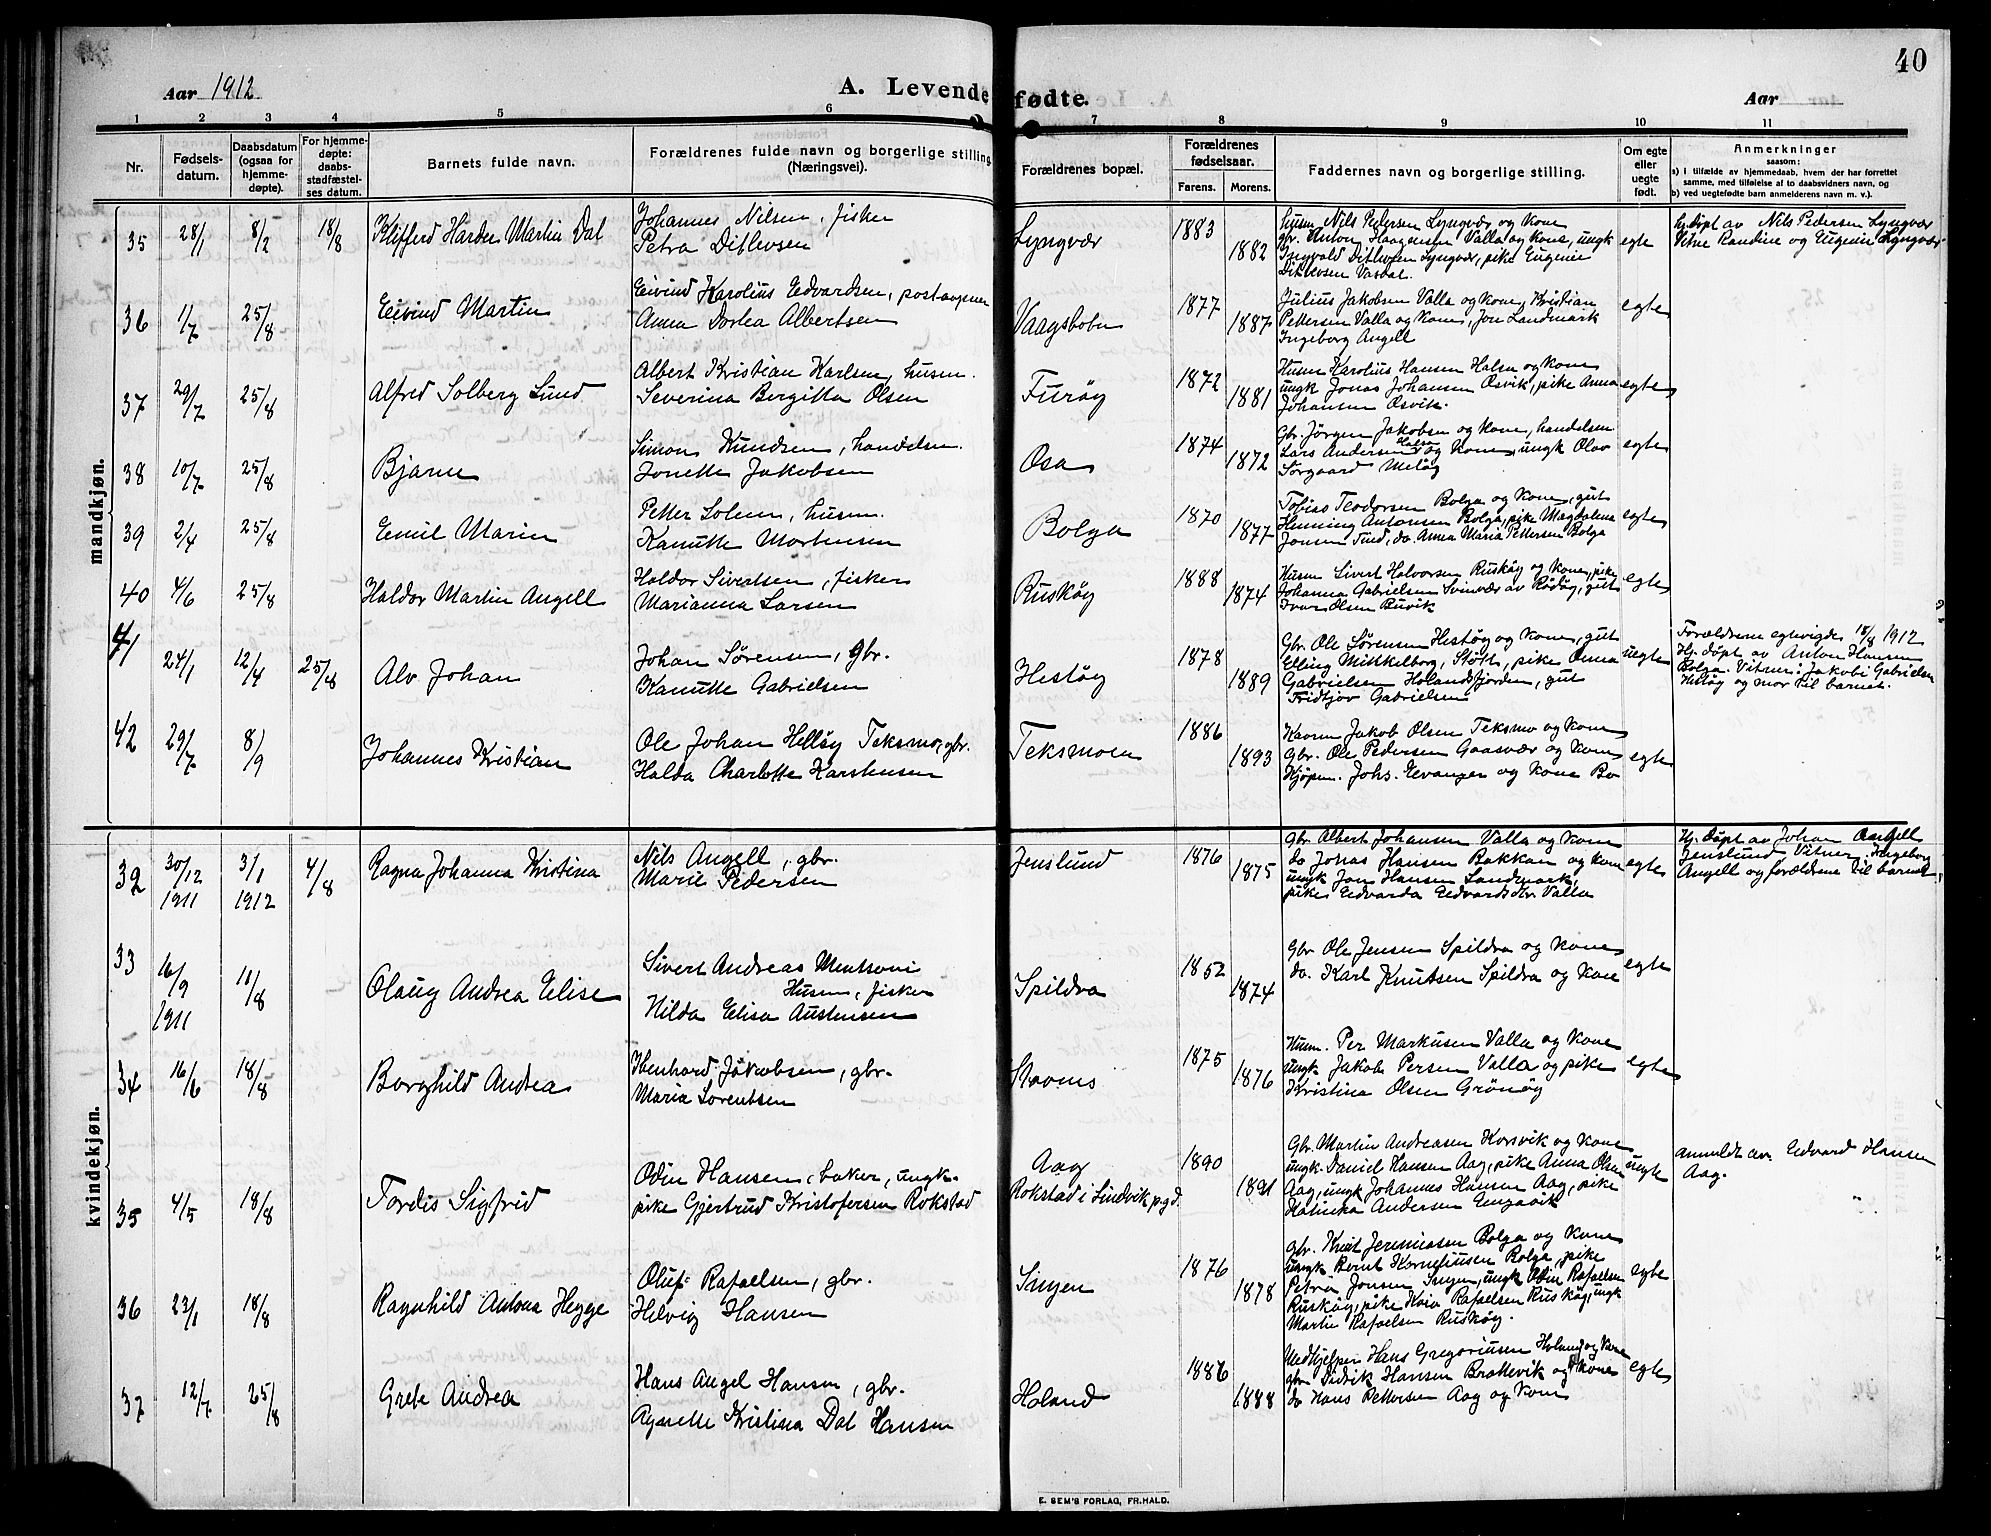 40
Aar 1912
A. Levendefødte.
Aar
1 2 3 4 5 6 7 8 9 10 11
Nr.
Fødsels-
datum.
Daabsdatum
(ogsaa for
hjemme-
døpte).
For hjemme-
døpte:
daabs-
stadfæstel-
ses datum.
Barnets fulde navn.
Forældrenes fulde navn og borgerlige stilling
(Næringsvei).
Forældrenes bopæl.
Forældrenes
fødselsaar.
Farens. Morens.
Faddernes navn og borgerlige stilling.
Om egte
eller
uegte
født.
Anmerkninger
saasom:
a) I tilfælde av hjemmedaab, hvem der har forrettet
samme, med tilføielse af to daabsvidners navn, og
b) ved uegtefødte barn anmelderens navn m. v.).
mandkjøn.
35 28/1 8/2 18/8 Klifferd Harder Martin Dal
Johannes Nilsen, fisker
Petra Ditlevsen
Lyngvær 1883 1882
husm Nils Pedersen Lyngvær og kone
gbr. Anton Haagensen Valla og kone, ungk
Ingvald Ditlevsen Lyngvær, pike Eugenie
Ditlevsen Vasdal.
egte
hj. døpt av Nils Pedersen Lyngvær
Vitne Randine og Eugenie Lyngvær
36 1/7 25/8 Eivind Martin
Eivind Karolius Edvardsen, postaapner
Anna Dorlea Albertsen
Vaagsboln 1877 1887
Julius Jakobsen Valla og kone, Kristian
Pettersen Valla og kone, Jon Landmark
Ingeborg Angell
egte
37 29/7 25/8 Alfred Solberg Lund
Albert Kristian Karlsen, husm.
Severina Bergitta Olsen
Furøy 1872 1881
Husm Karolius Hansen Halsa og kone
ungk Jonas Johansen Osvik, pike Anna
Johansen Osvik.
egte
38 10/7 25/8 Bjarne
Simon Knudsen, handelsm.
Jonette Jakobsen
Osa 1874 1872
Gbr. Jørgen Jakobsen og kone, handelsm
Lars Andersen Halsa og kone, ungk Olav
Sørgaard Meløy
egte
39 2/4 25/8 Emil Marin
Petter Solem, husm.
Kanutte Mortensen
Bolga 1870 1877
Tobias Teodorsen Bolga og kone, gut
Henning Antonsen Bolga, pike Magdalena
Jonsen Tind, do. Anna Maria Pettersen Bolga
egte
40 4/6 25/8 Haldor Martin Angell
Haldor Sivertsen, fisker
Marianna Larsen
Ruskøy 1888 1874
Husm Sivert Halvorsen Ruskøy og kone, pike
Johanna Gabrielsen Svinvær av Rødøy, gut
Ivar Olsen Buvik
egte
41 24/1 12/4 25/8 Alv Johan
Johan Sørensen, gbr.
Kanutte Gabrielsen
Hestøy 1878 1889
Gbr. Ole Sørensen Hestøy og kone, gut
Elling Mittkelborg, Støtt, pike Anna
Gabrielsen Holandsfjorden, gut
Fridtjov Gabrielsen
uegte
Forældrene egteviede 18/8 1912
Hj. døpt av Anton Hansen
Bolga. Vitner: Jakobi Gabrielsen
Hestøy og mor til barnet.
42 29/7 8/9 Johannes Kristian
Ole Johan Hellsy Teksmo, gbr.
Halda Charlotte Karstensen
Teksmoen 1886 1893
Jakob Olsen Teksmo og kone
gbr. Ole Pedersen Gaasvær og kone
Kjøpm. Johs. Evanger og kone Bo
egte
kvindekjøn.
32 30/12 1911 3/1 1912 4/8 Ragna Johanna Kristina
Nils Angell, gbr.
Marie Pedersen
Jenslund 1876 1875
gbr Albert Johansen Valla og kone
do Jonas Hansen Bakkan og kone
ungk Jon Hansen Landmark,
pike Edvarda Edvardsdtr Valla
egte
Hj. døpt av Johan Angell
Jenslund Vitner: Ingeborg
Angell og forældrene til barnet.
33 16/9 1911 11/8 Olaug Andrea Elise
Sivert Andreas Mentsoni
Husm, fisker
Nilda Elisa Austensen
Spildra 1852 1874
gbr Ole Jensen Spildra og kone
do. Karl Knutsen Spildra og kone
egte
34 16/6 18/8 Borghild Andrea
Ebenhard Jakobsen, gbr.
Maria Sorentsen
Stavnes 1875 1876
Husm. Per Markusen Valla og kone
ungk Jakob Persen Valla og pike
Kristina Olsen Grönöy
egte
35 4/5 18/8 Tordis Sigfrid
Odin Hansen, baker, ungk.
pike Gjertrud Kristofersen Rokstad
Aag
Rokstad i Sindvik pgd. 1890 1891
Gbr. Martin Andreasen Korsvik og kone
ungk. Daniel Hansen Aag, pike Anna Olsen
Aag, ungk Johannes Hansen Aag, pike
Andersen Engavik
uegte
anmeldt av. Edvard Hansen
Aag.
36 23/1 18/8 Ragnhild Antona Hegge
Oluf Rafaelsen, gbr.
Helvig Hansen
Smyen 1876 1878
gbr. Knut Jeremiasen Bolga og kone
ungk Bernt Korneliusen Bolga, pike
Petra Jonsen Smyen, ungk Odin Rafaelsen
Ruskøy, pike Kaia Rafaelsen Ruskøy, ungk
Martin Rafaelsen Ruskøy.
egte
37 12/7 25/8 Grete Andrea
Hans Angel Hansen, gbr.
Agnette Kristina Dal Hansen
Holand 1886 1888
Medhjelper Hans Gregoriusen Holand og kone
gbr Didrik Hansen Brattevik og kone
do Hans Pettersen Aag og kone
egte
E. SEM'S FORLAG, FR.HALD.